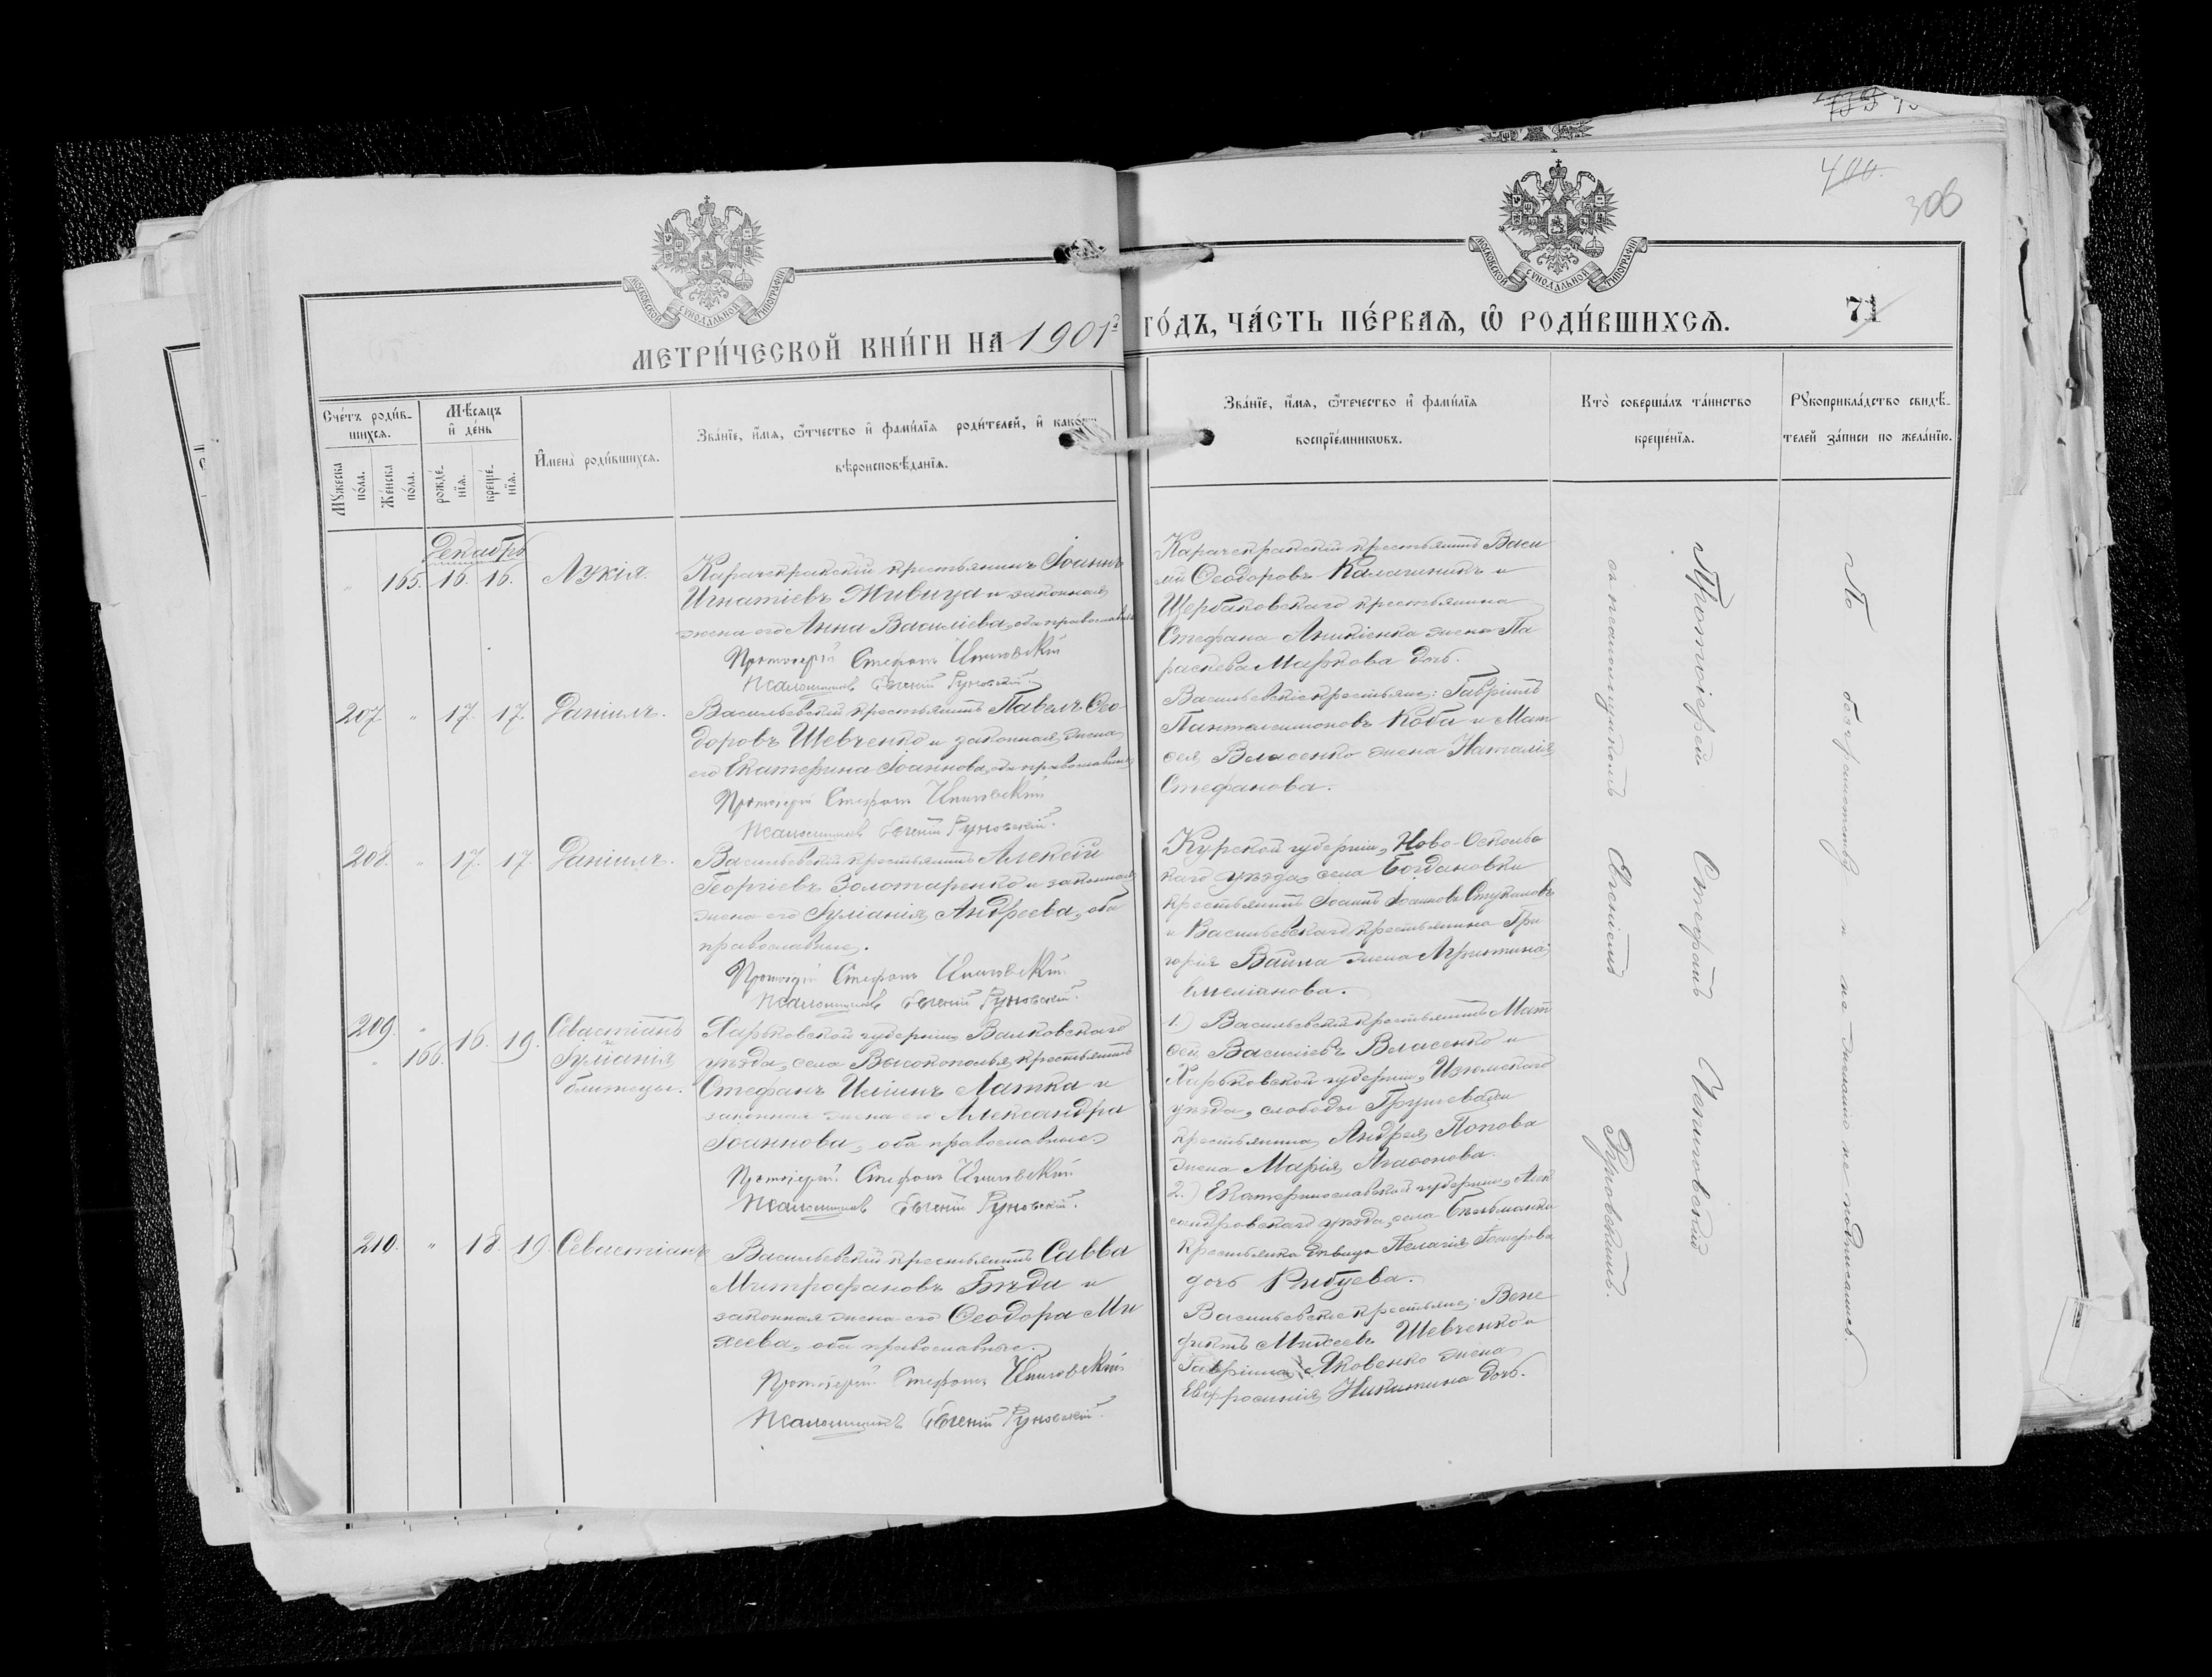 400.
306
МОСКОВСКОЙ СѴНОДАЛЬНОЙ ТИПОГРАФІИ
МОСКОВСКОЙ СѴНОДАЛЬНОЙ ТИПОГРАФІИ
МЕТРИ́ЧЕСКОЙ КНИ́ГИ НА 1901 ГО́ДЪ, ЧА́СТЬ ПЕ́РВАЯ, Ѽ РОДИ́ВШИХСѦ.
71
Сче́тъ роди́в-
шихсѧ.
Мꙋжеска по́ла.
Же́нска по́ла.
Мѣ́сяцъ
и҆ де́нь
рожде́-
нїѧ.
креще́-
нїѧ.
И҆мена̀ роди́вшихсѧ.
Зва́нїе, и҆́мѧ, ѻ҆́тчество и҆ фами́лїѧ роди́телей, и҆ како́гѡ
вѣроисповѣ́данїѧ.
Зва́нїе, и҆́мѧ, ѻ҆те́чество и҆ фами́лїѧ
воспрїе́мникѡвъ.
Кто̀ соверша́лъ та́инство
креще́нїѧ.
Рꙋкоприкла́дство свидѣ́-
телей за́писи по жела́нїю.
Декабрь
" 165. 16. 16. Лукія.
Карачекракскій крестьянинъ Іоаннъ
Игнатіевъ Живица и законная
жена его Анна Василіева, оба православные
Протоіерей Стефанъ
Псаломщикъ Евгеній Руновскій.
Карачекракскій крестьянинъ Васи
лій Ѳеодоровъ Калашникъ и
Щербаковскаго крестьянина
Стефана Аникіенка жена Па
раскева Маркова дочь.
207 " 17. 17. Даніилъ.
Васильевскій крестьянинъ Павелъ Ѳео
доровъ Шевченко и законная жена
его Екатерина Іоаннова, оба православные
Протоіерей Стефанъ
Псаломщикъ Евгеній Руновскій.
Васильевскіе крестьяне: Гавріилъ
Пантелеимоновъ Коба и Мат
ѳея Власенко жена Наталія
Стефанова.
208. " 17. 17. Даніилъ.
Васильевскій крестьянинъ Алексій
Георгіевъ Золотаренко и законная
жена его Іуліанія Андреева, оба
православные.
Протоіерей Стефанъ
Псаломщикъ Евгеній Руновскій.
Курской губерніи, Ново-Осколь
каго уѣзда, села Богдановки
крестьянинъ Іоаннъ Іоанновъ Стукаловъ
и Васильевскаго крестьянина Гри
горія Вайла жена
Емеліанова.
209. " 16. 19. Севастіанъ
" 166. и
Іуліанія
близнецы.
Харьковской губерніи Валковскаго
уѣзда, села Высокополья крестьянинъ
Стефанъ Иліинъ Латка и
законная жена его Александра
Іоаннова, оба православные.
Протоіерей Стефанъ
Псаломщикъ Евгеній Руновскій.
1.) Васильевскій крестьянинъ Мат
ѳей Василіевъ Власенко и
Харьковской губерніи, Изюмскаго
уѣзда, слободы Грушевахи
крестьянина Андрея Попова
жена Марія Агаѳонова.
2.) Екатеринославской губерніи, Алек
сандровскаго уѣзда, села Бѣльманки
крестьянка дѣвица Пелагія
дочь Рибцева.
210. " 18. 19. Севастіанъ
Васильевскій крестьянинъ Савва
Митрофановъ Бѣда и
законная жена его Ѳеодора Ми
хеева, оба православные.
Протоіерей Стефанъ
Псаломщикъ Евгеній Руновскій.
Васильевскіе крестьяне: Вене
диктъ Михеевъ Шевченко и
Гавріила Яковенко жена
Евфросинія Никитина дочь.
Протоіерей Стефанъ
съ псаломщикомъ Евгеніемъ Руновскимъ.
По безграмотству и не желанію не подписались.